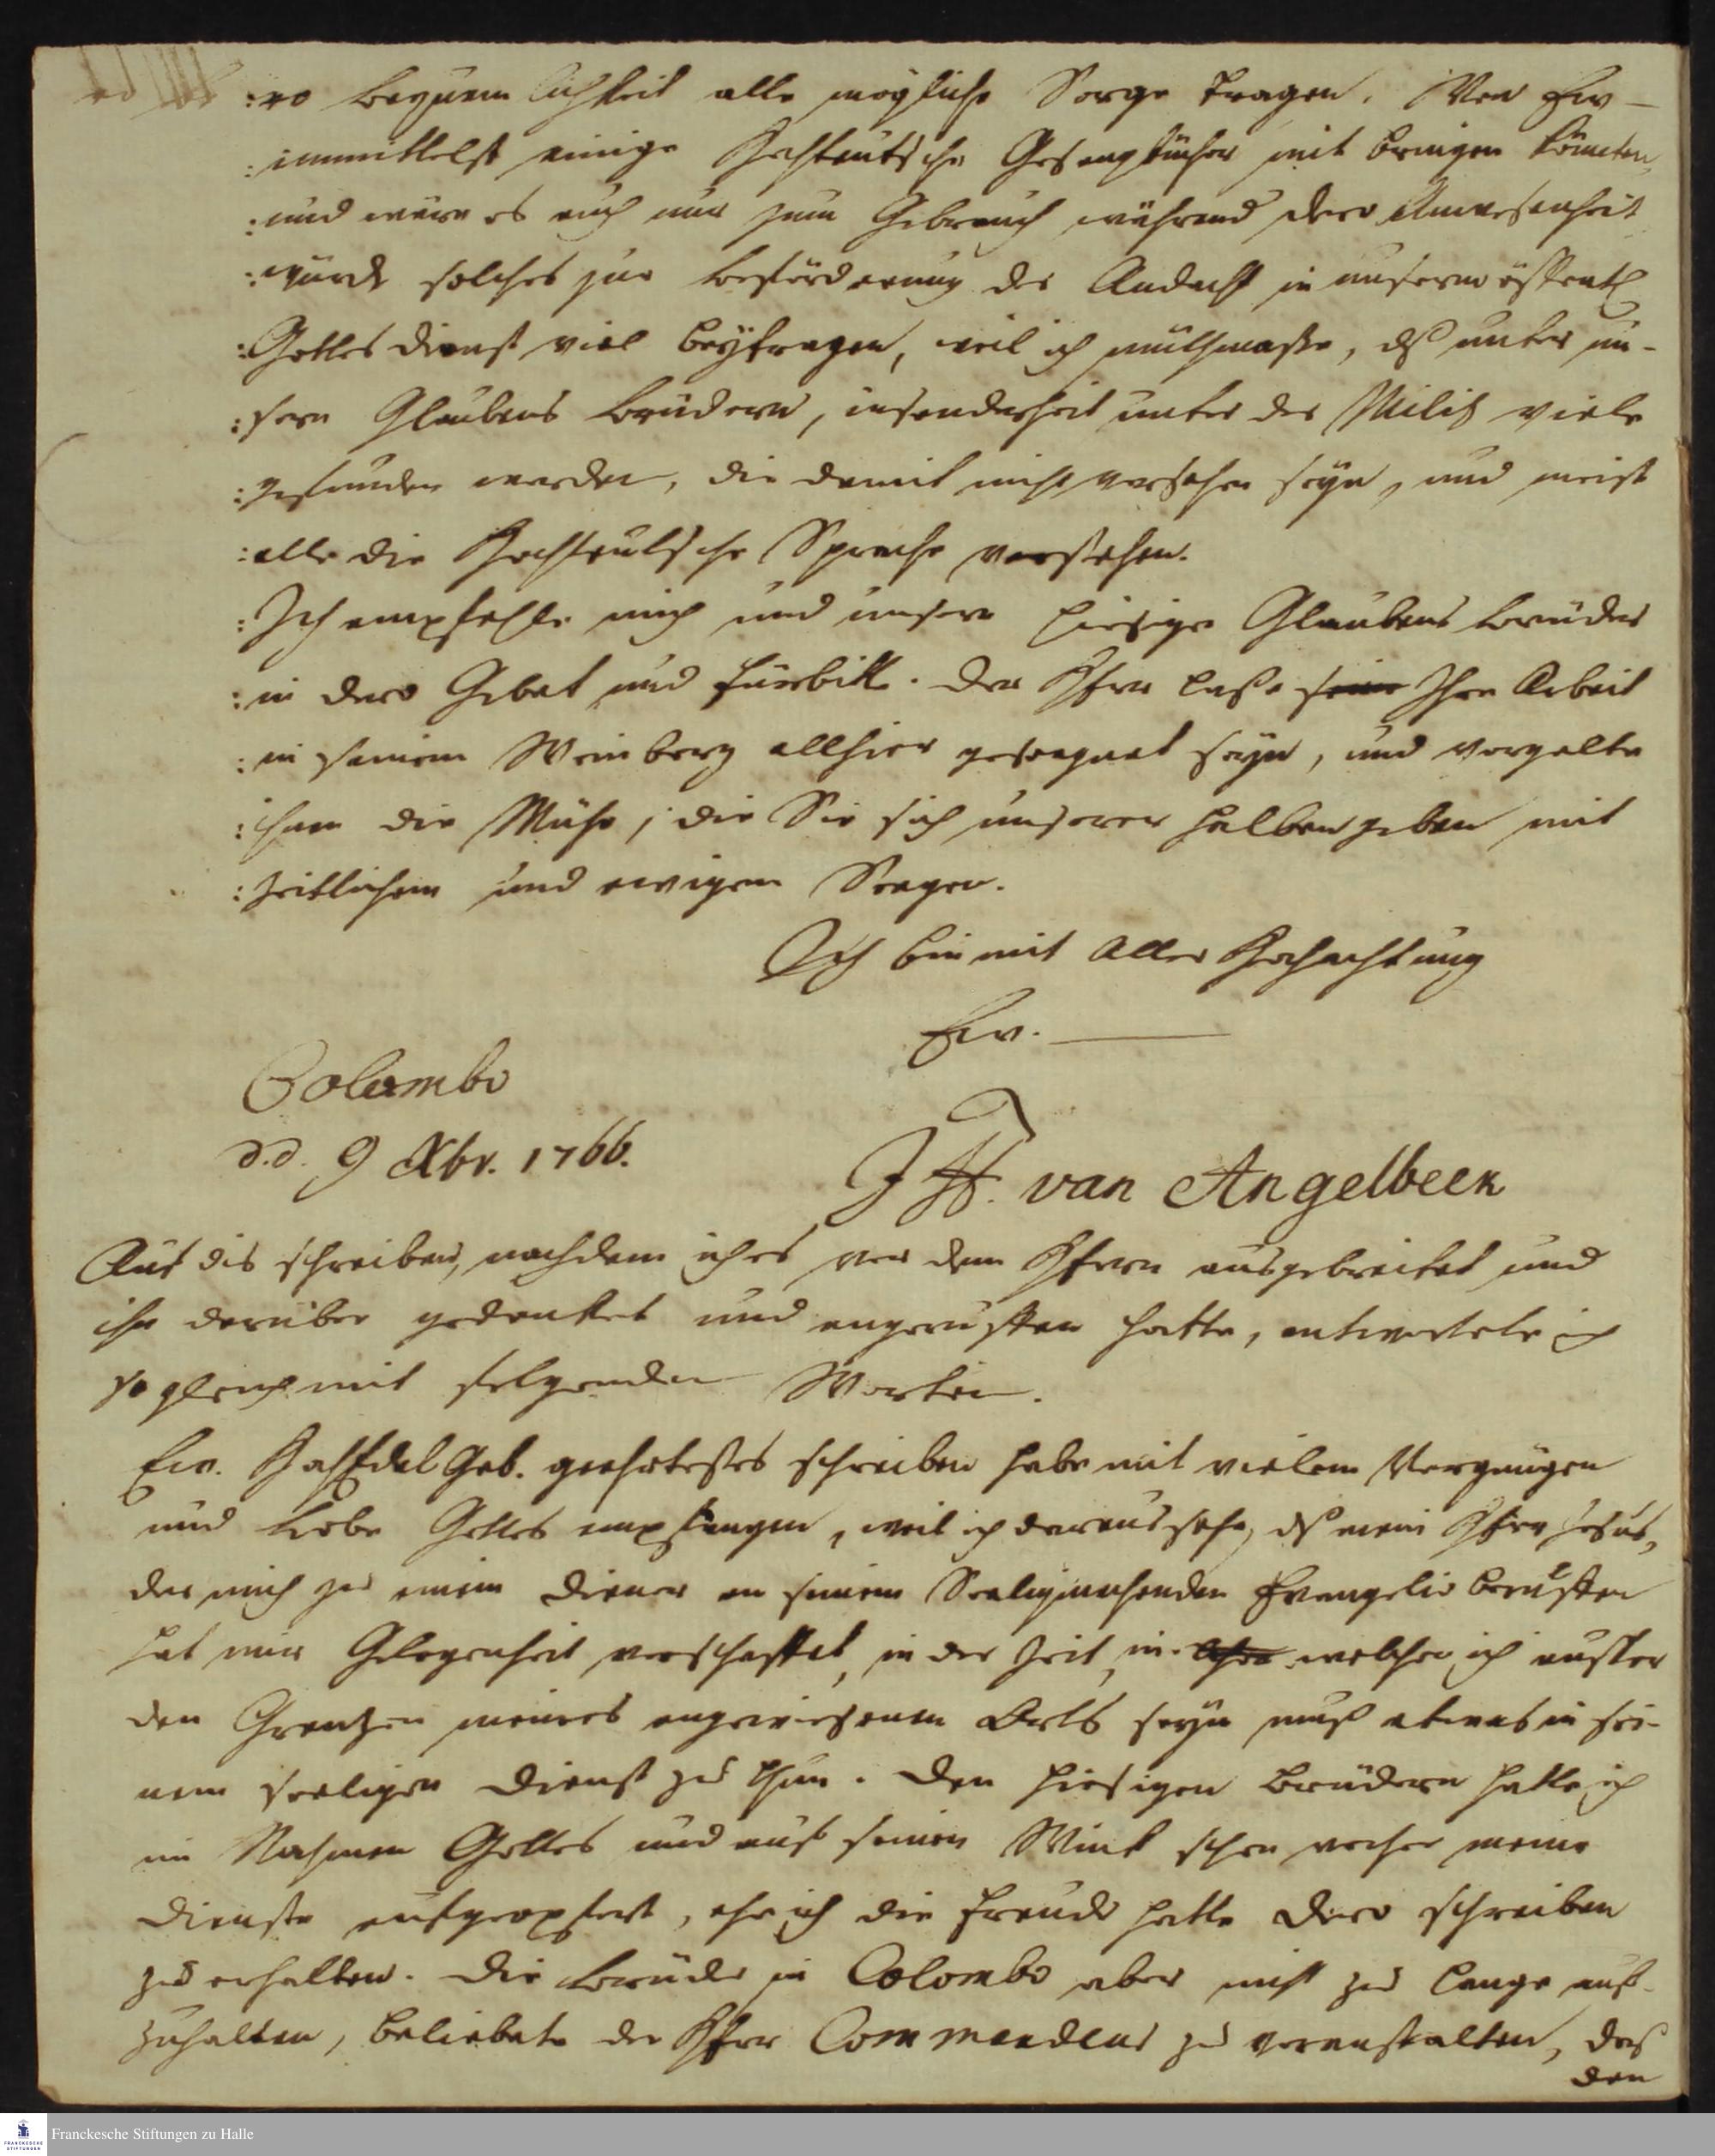 :ro bequemlichkeit alle mögliche Sorge tragen. Wen Ew –
:immittelst einige Hochteutsche Gesangbücher mit bringen könten,
:und wäre es auch nur zum Gebrauch während dero Anwesenheit
:würde solches zur beförderung der Andacht in unserm öffentl
:Gottes dienst viel beytragen, weil ich muthmasse, dß unter un-
:sern Glaubens brüdern, insonderheit unter der Militz viele
:gefunden werden, die damit nicht versehen seyn, und meist
:alle die Hochteutsche Sprache verstehen.
:Ich empfehle mich und unsere hiesige Glaubens brüder
:in dero Gebet und fürbitt. der HErr lasse seine Ihre Arbeit
:in seinem Weinberg allhier gesegnet seyn, und vergelte
:ihnen die Mühe, die Sie sich unserer halben geben mit
:zeitlichem und ewigem Seegen.
Ich bin mit aller Hochachtung
Ew.
Colombo
d.d. 9 Xbr. 1766.
J H. van Angelbeek
Auf dis schreiben, nachdem ich es vor dem HErrn ausgebreitet und
ihn darüber gedancket und angeruffen hatte, antwortete ich
so gleich mit folgenden Worten.
Ew. HochEdel Geb. geehrtestes schreiben habe mit vielem Vergnügen
und Lobe Gottes empfangen, weil ich daraus sehe, dß mein HErr Jesus,
der mich zu einem Diener an seinem Seeligmachenden Evangelio beruffen
hat mir Gelegenheit verschaffet, in der Zeit, in welcher ich ausser
den Grentzen meines angewiesenen Orts seyn muß etwas in sei-
nem seeligen Dienst zu thun. Den hiesigen brüdern hatte ich
im Nahmen Gottes und auf seinen Wink schon vorher meine
Dienste aufgeopfert, ehe ich die Freude hatte Dero schreiben
zu erhalten. Die brüder in Colombo aber nicht zu lange auf-
zuhalten, beliebete der HErr Commandeur zu veranstalten, daß
den
Franckesche Stiftungen zu Halle